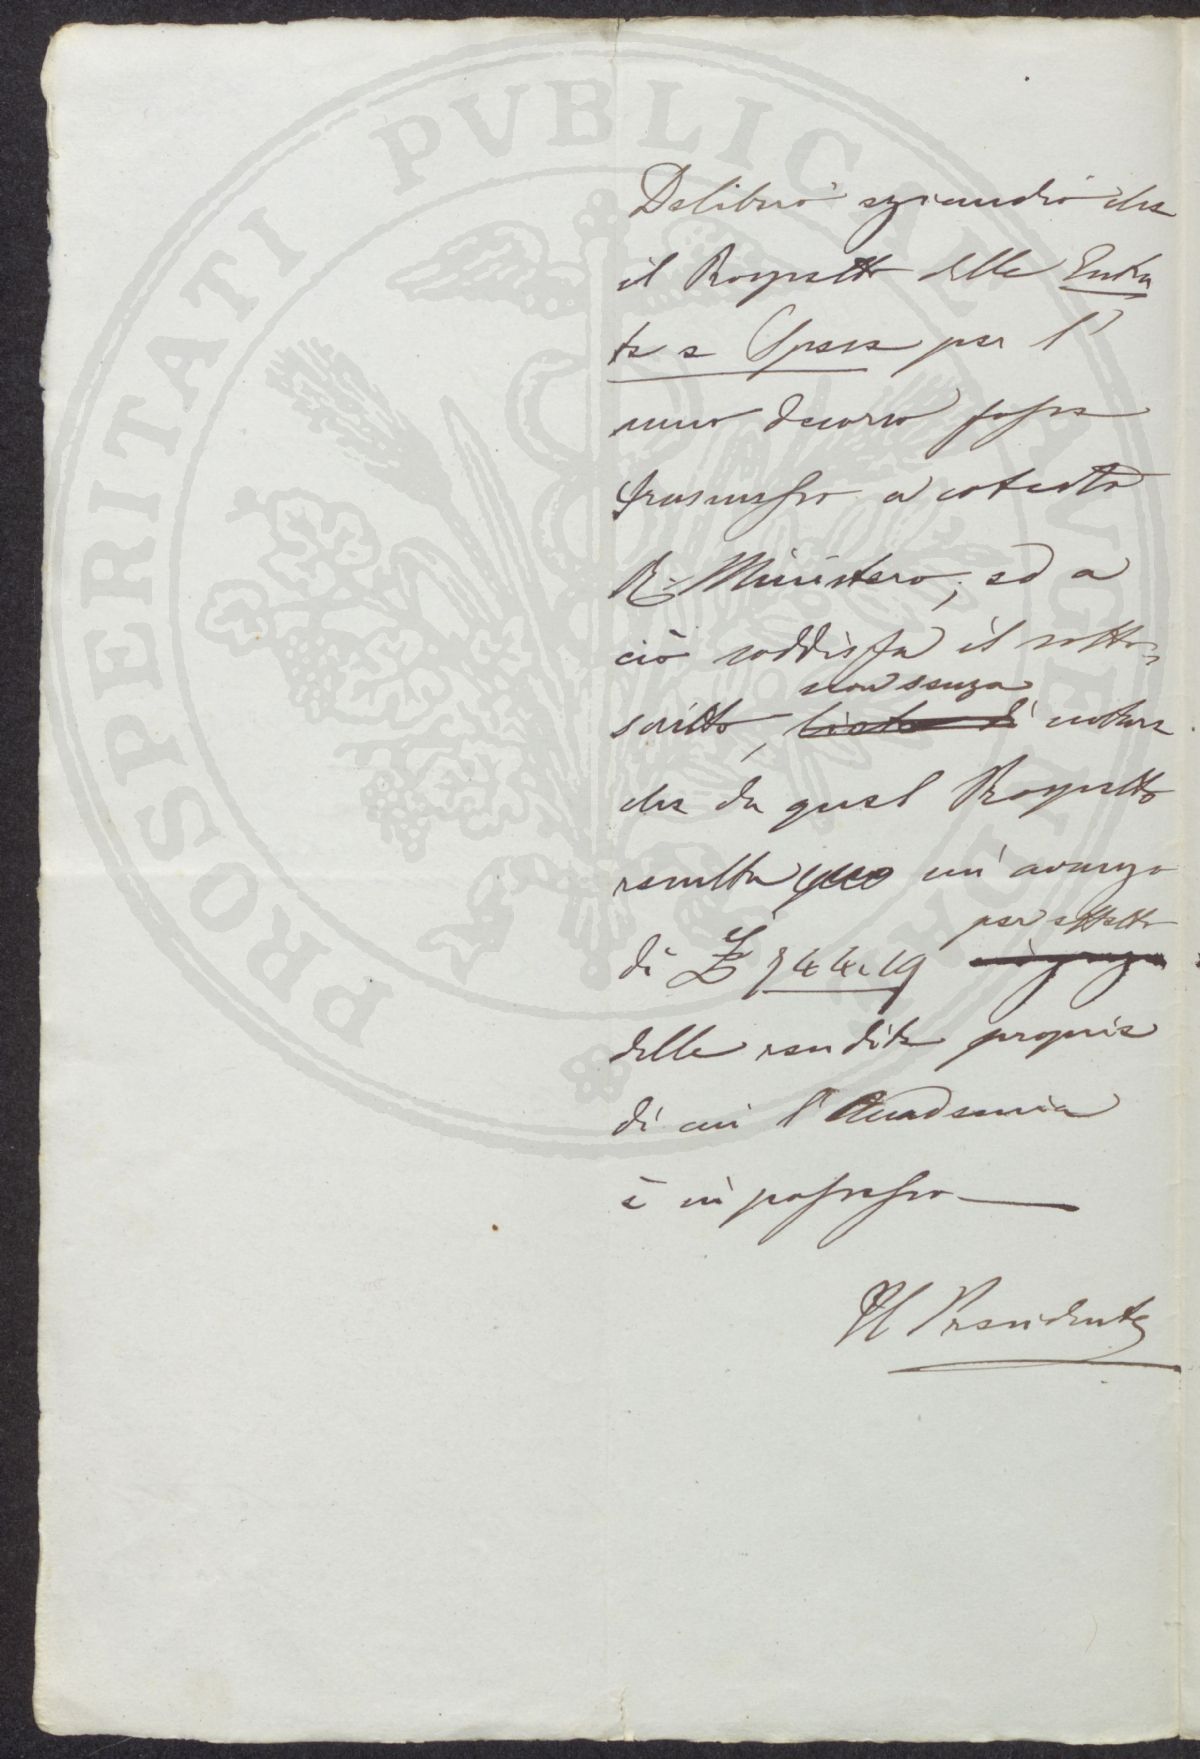 PROSPERITATI PVBLICAE AVGENDAE
Deliberò eziandio che
il Prospetto delle Entra
te e Spese per l'
anno decorso fosse
trasmesso a cotesto
R. Ministero, ed a
ciò soddisfa il sotto-
non senza
scritto, notare
che da quel Prospetto
resulta un' avanzo
per effetto
di £ 944.19
delle rendite proprie
di cui l'Accademia
è in possesso
Il Presidente